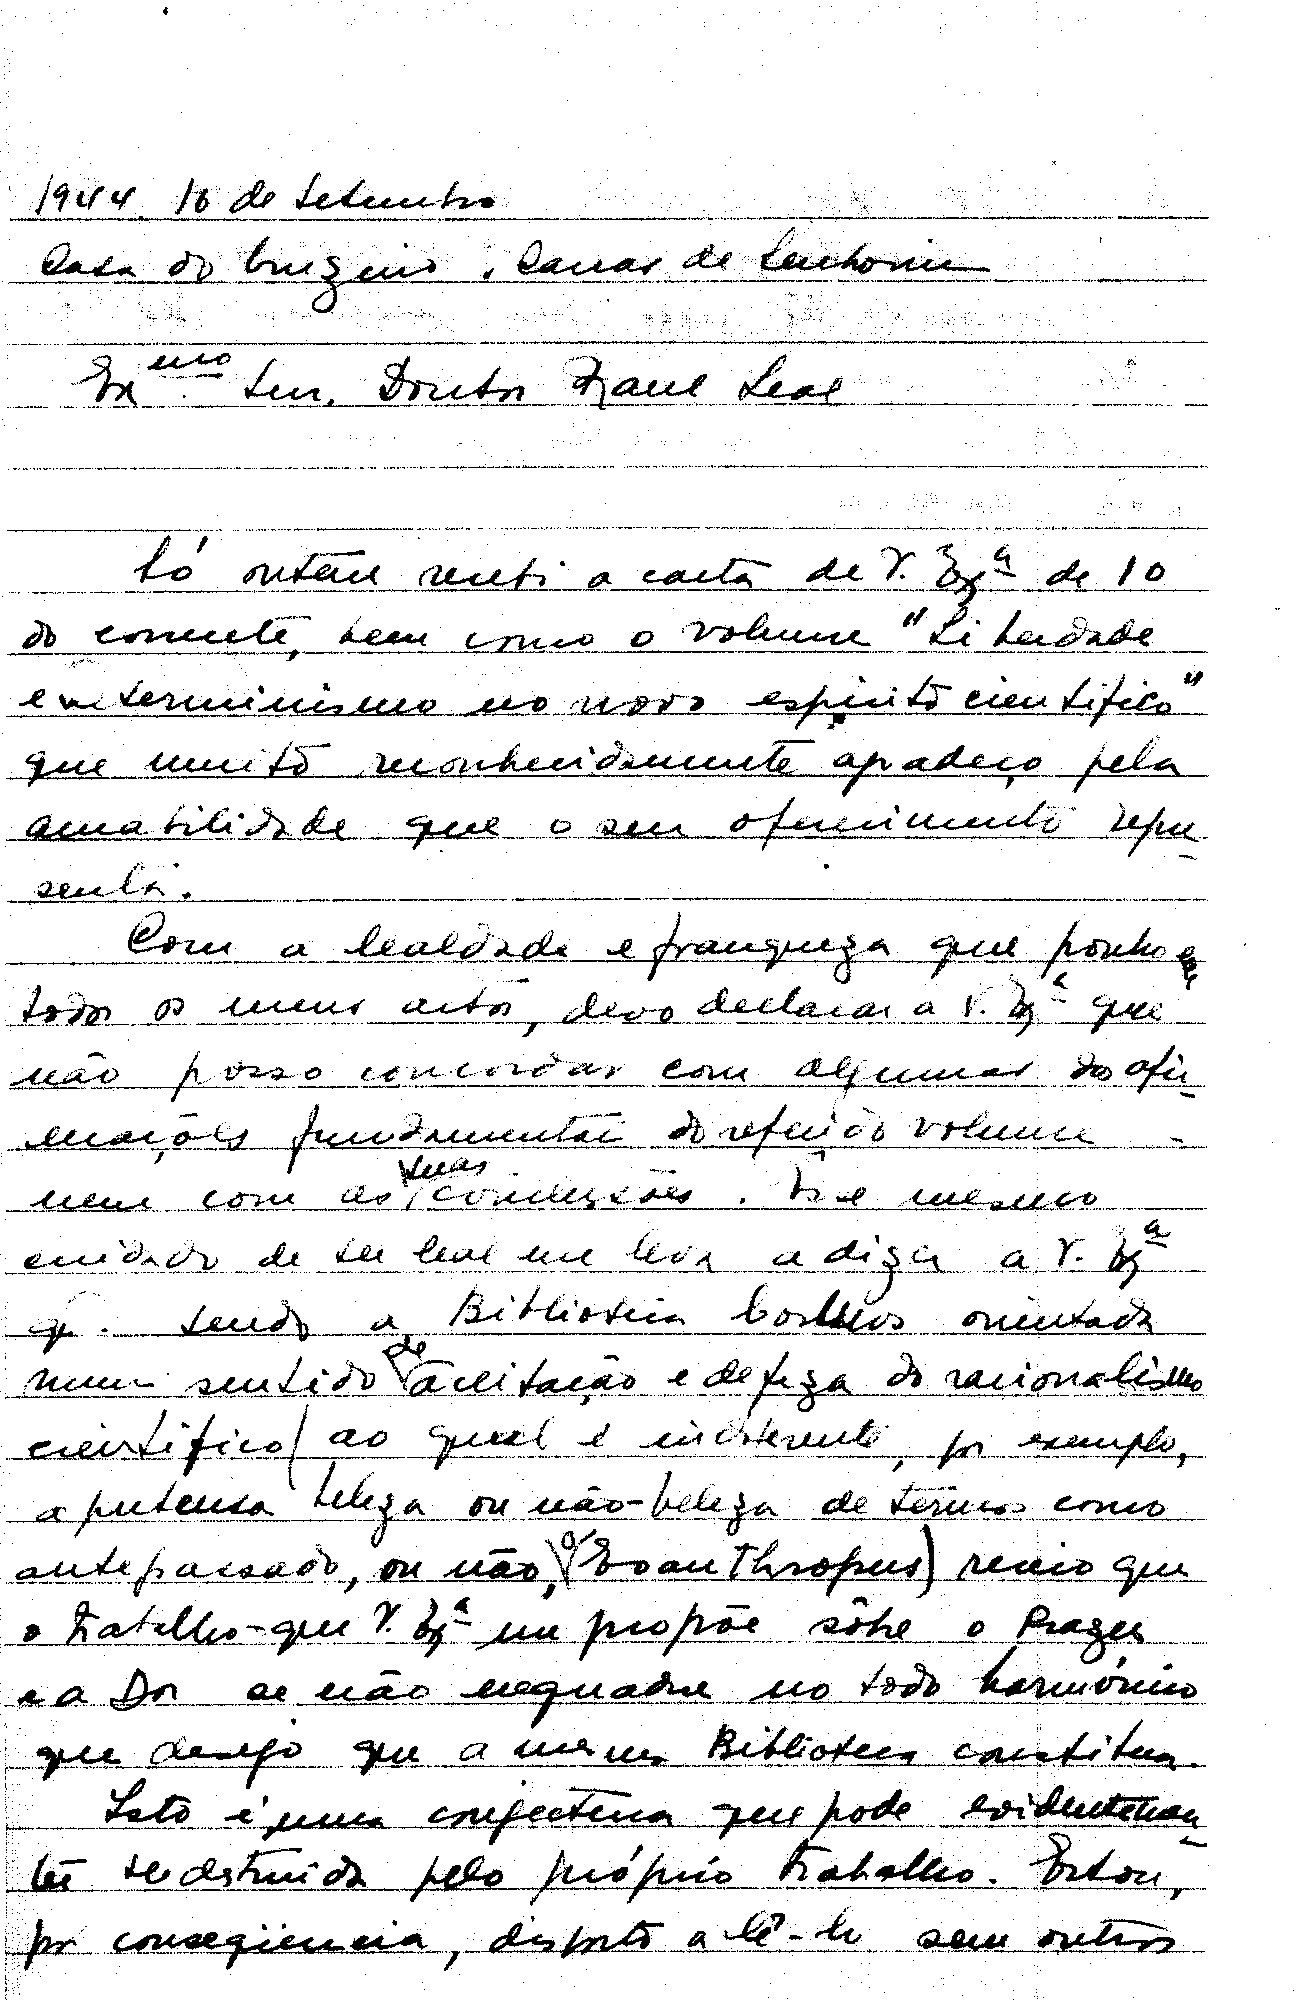 1944. 16 de Setembro
Casa do Cruzeiro. Canas de Senhorim
Exmo. Snr. Doutor Raul Leal
Só ontem recebi a carta de V. Exª de 10
do corrente, bem como o volume "Liberdade
e determinismo no novo espírito científico"
que muito reconhecidamente agradeço pela
amabilidade que o seu oferecimento repre-
senta.
Com a lealdade e franqueza que ponho em
todos os meus actos, devo declarar a V. Exª que
não posso concordar com algumas das afir-
mações fundamentais do referido volume
nem com as suas conclusões. Êsse mesmo
cuidado de ser leal me leva a dizer a V. Exª
q. sendo a Biblioteca Cosmos orientada
num sentido de aceitação e defeza do racionalismo
científico (ao qual é indiferente, por exemplo,
a pretensa beleza ou não-beleza de termos como
antepassado, ou não, o Eoanthropus) receio que
o trabalho que V. Exª me propõe sôbre o Prazer
e a Dor se não enquadre no todo harmónico
que desejo que a mesma Biblioteca constitua.
Isto é uma conjectura que pode evidentemen-
te ser destruida pelo próprio trabalho. Estou,
por conseqüencia, disposto a lê-lo sem outros